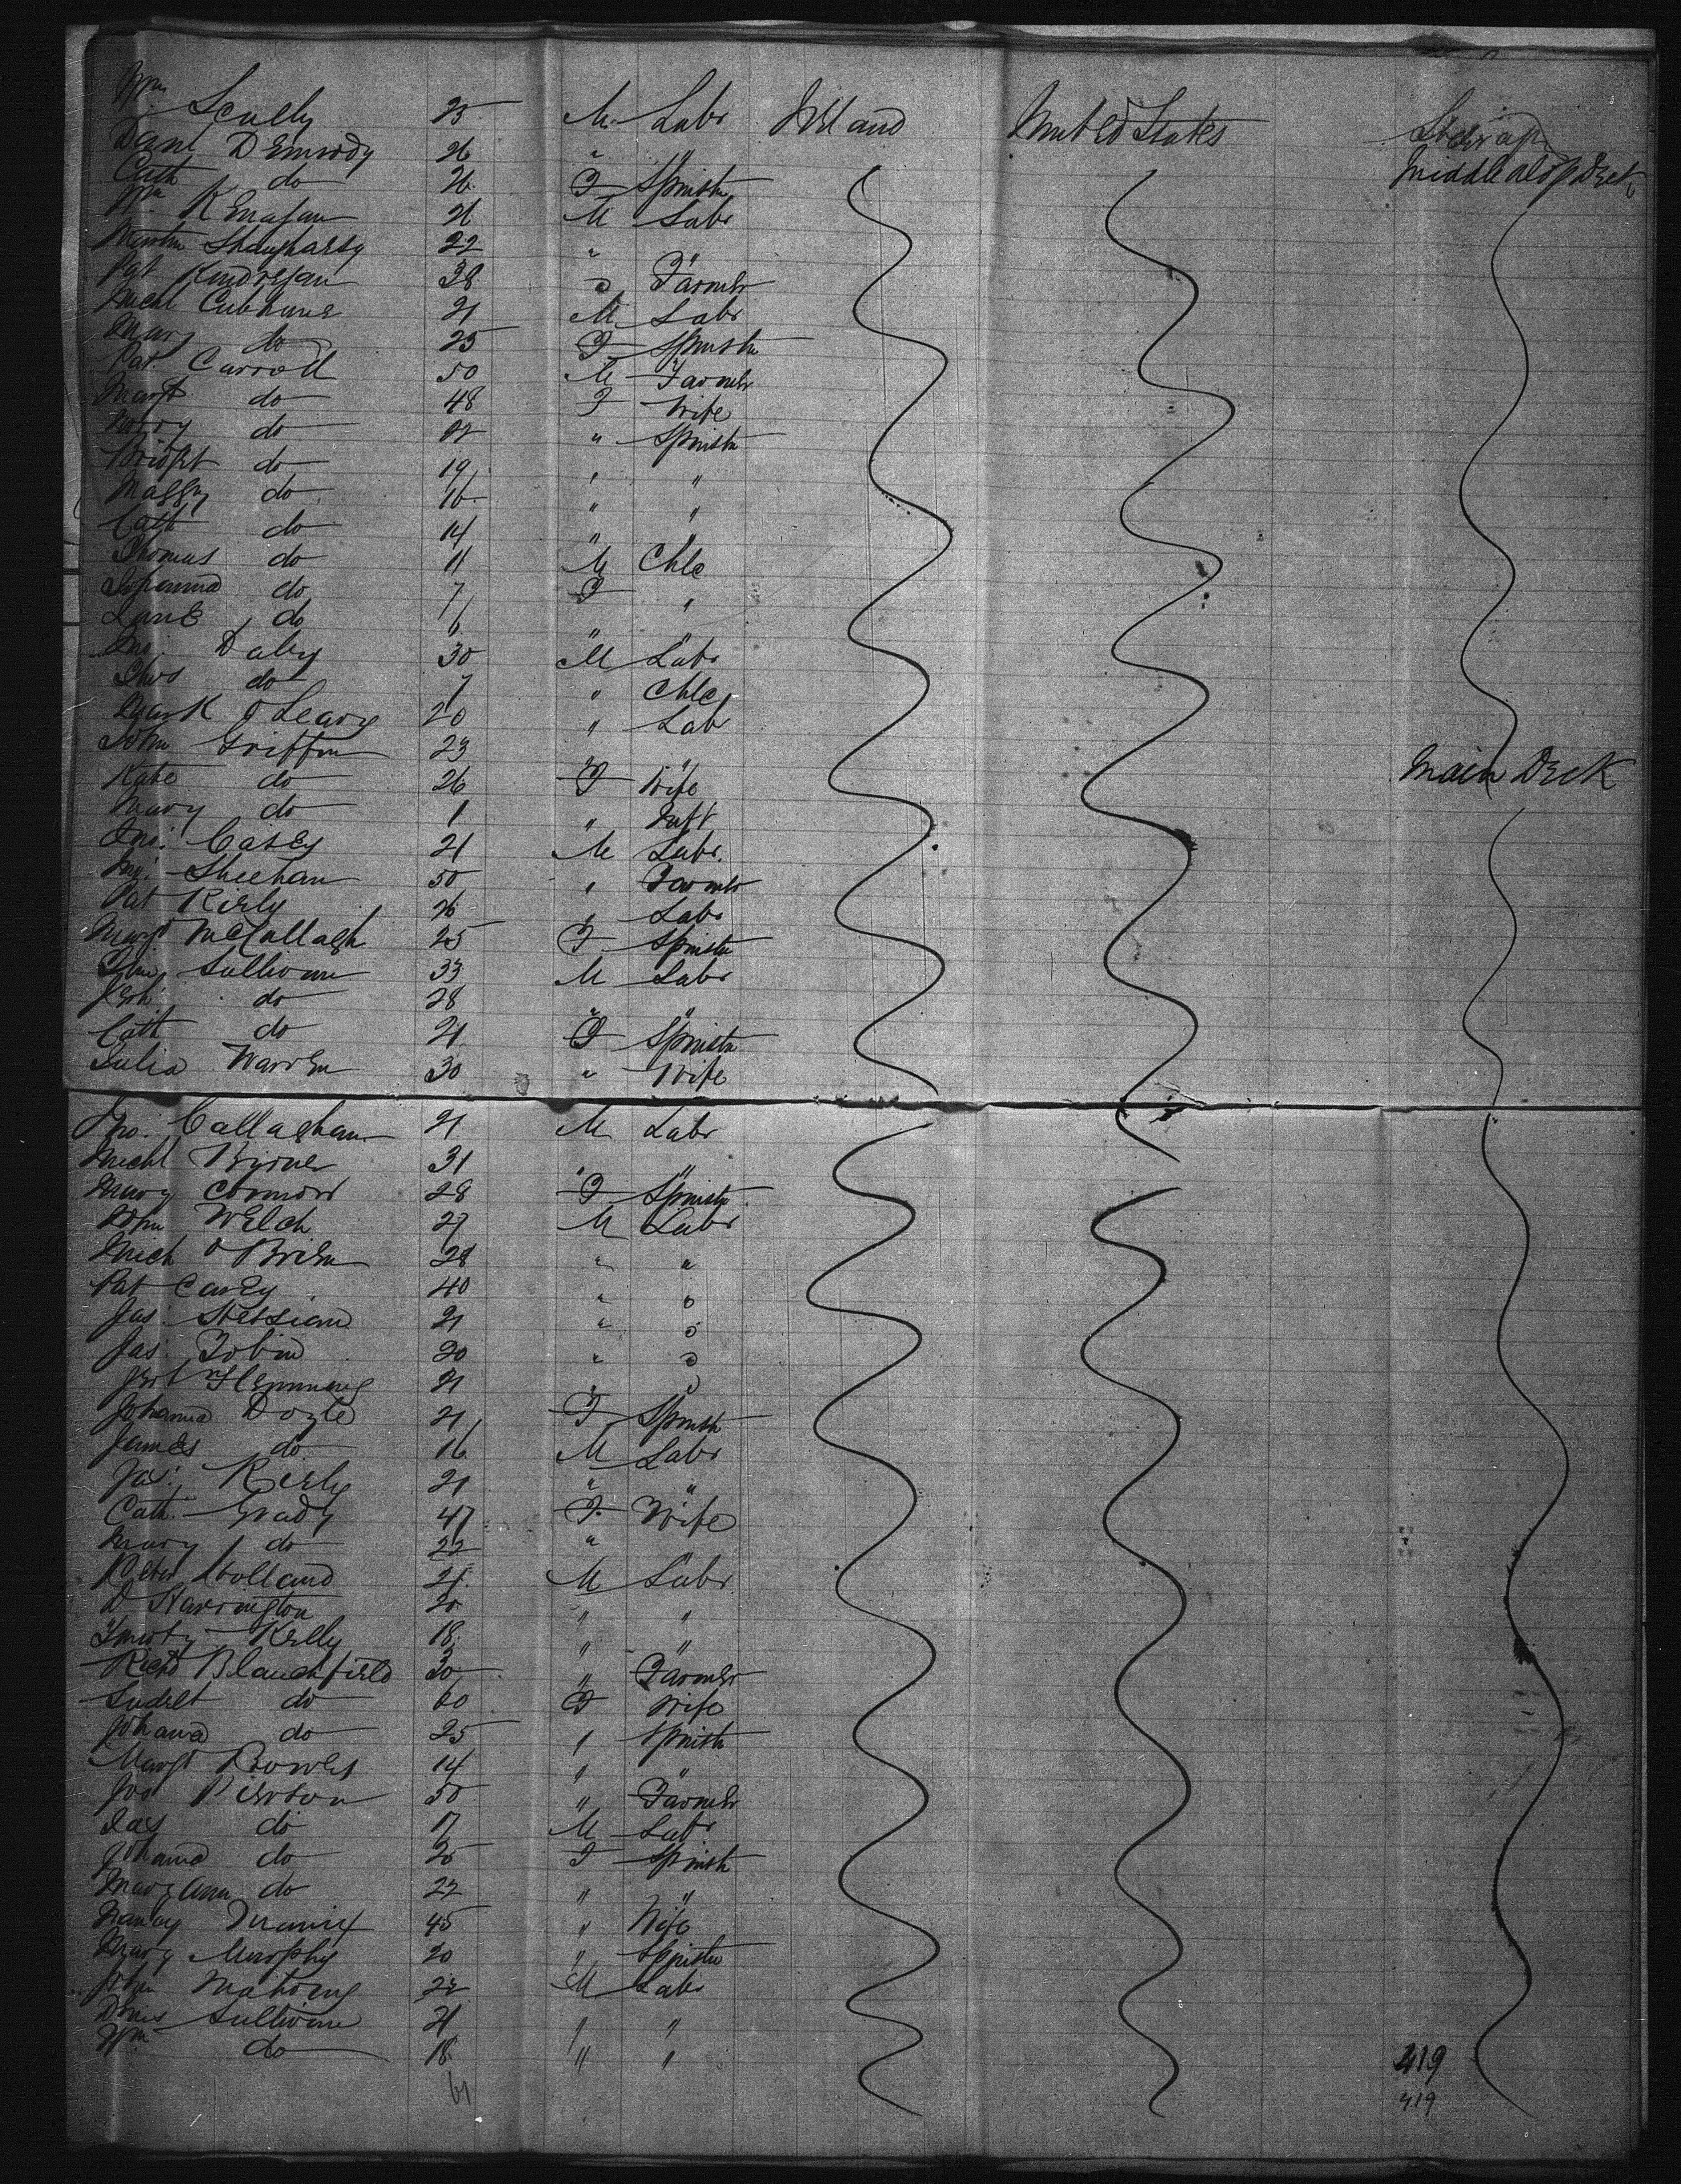 Wm Scully 25 M Labr Ireland United States Steerage
Danl Dermody 26 " " Middle alop Deck
Cath do 26 F Spinstr
Wm Kenafan 26 M Labr
Martin Shaughnessy 22 " "
Pat 38 " Farmer
Michl Cubhane 21 M Labr
Mary do 25 F Spinstr
Pat. Carroll 50 M Farmer
Margt do 48 F Wife
Norry do 22 " Spinstr
Bridgt do 19 " "
Maggy do 16 " "
Cath do 14 " "
Thomas do 11 M Chld
do 7 F "
Jane do 6 " "
Jno. Daley 30 M Labr
Thos do 7 " Chld
Mark O Leary 20 " Lab
John Griffin 23 " "
Kate do 26 F Wife Main Deck
Mary do 1 " Inft
Jno. Casey 21 M Labr.
Sheehan 50 " Farmer
Pat Kiely 26 " Labr
Margt McCallagh 25 F Spinstr
Sullivan 33 M Labr
do 28 " "
Cath do 21 F Spinstr
Julia Warren 30 " Wife
Jno. Callaghan 21 M Labr
Michl Byrnes 31 " "
Mary Connors 28 F Spinstr
John Welch 27 M Labr
Mich O Brien 28 " "
Pat Casey 40 " "
Jas. 21 " "
Jas. Tobin 20 " "
Flemming 21 " "
Johanna Doyle 21 F Spinstr
James do 16 M Labr
Jas. Kiely 21 " "
Cath. Grady 47 F Wife
Mary do 22 " "
Peter Holland 21 M Labr
D Harrington 20 " "
Kelly 18 " "
Richd Blanchfield 30 " Farmer
do 60 F Wife
Johana do 25 " Spinstr
Margt Bowles 14 " "
Pierson 50 " Farmer
Jas do 17 M Labr
Johana do 25 F Spinstr
Mary Ann do 22 " "
45 " Wife
Mary Murphy 20 " Spinstr
John Mahoney 22 M Labr
Denis Sullivan 21 " "
Wm do 18 " " 419
61 419